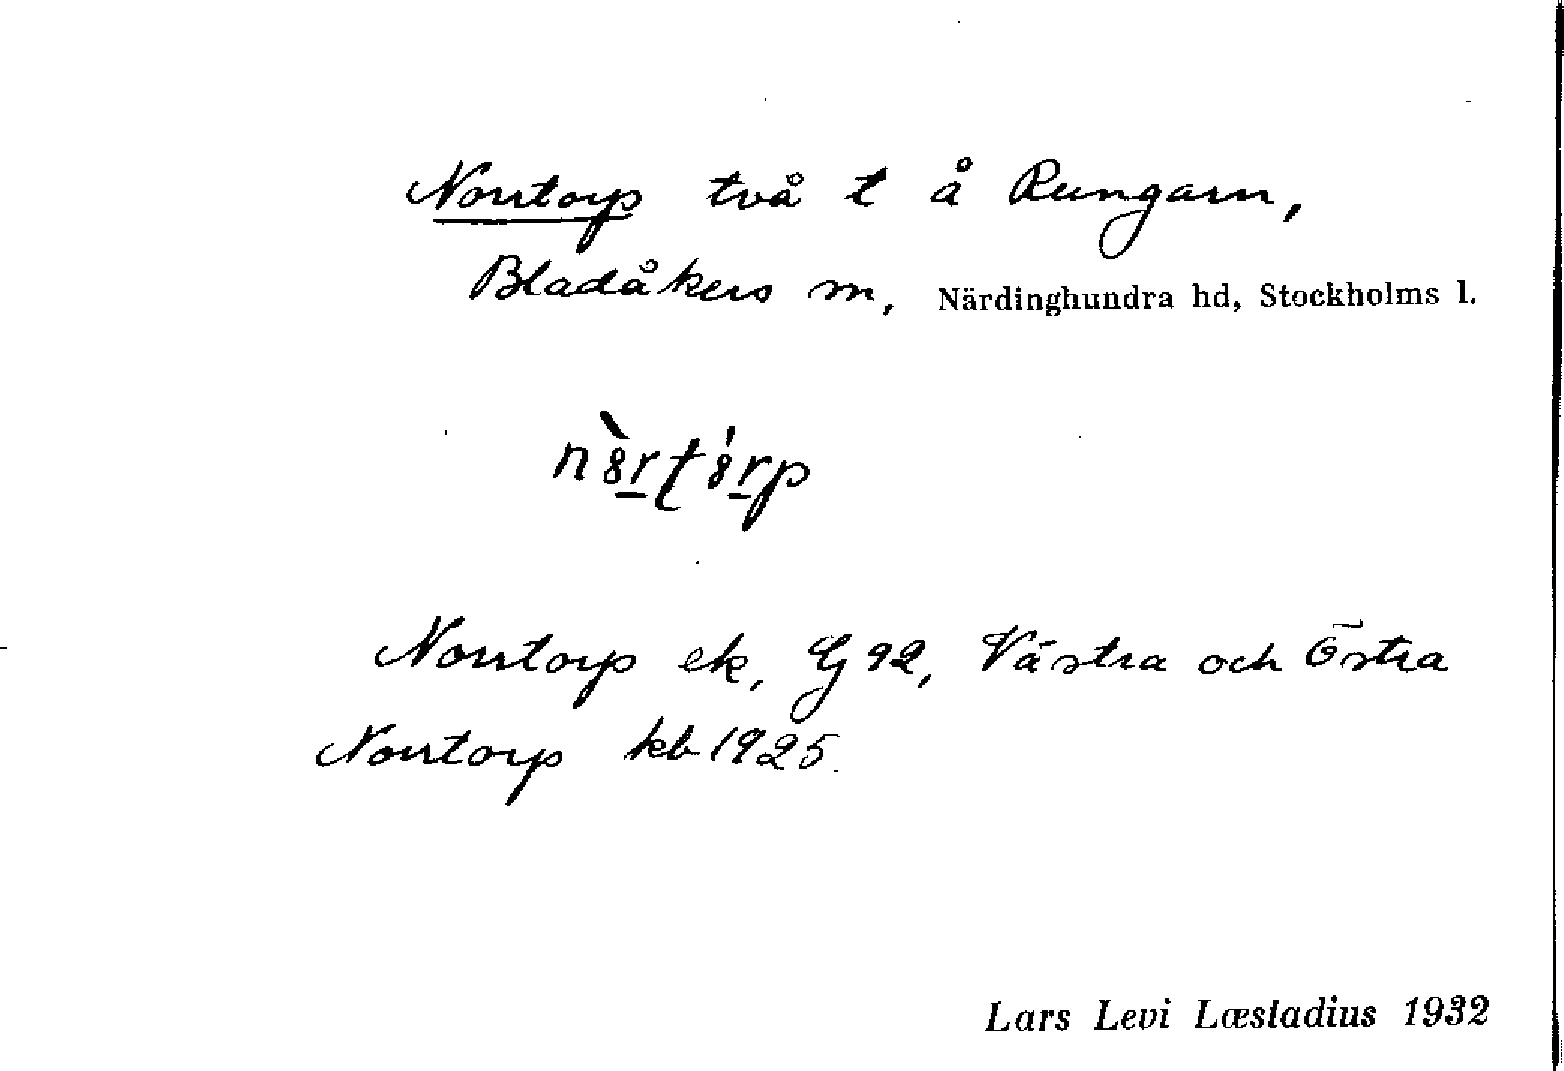 Norrtorp två t å Rungarn,
Bladåkers sn, Närdinghundra hd, Stockholms l.
Norrtorp ek, G 92, Västra och Östra
Norrtorp kb 1925.
Lars Levi Læstadius 1932